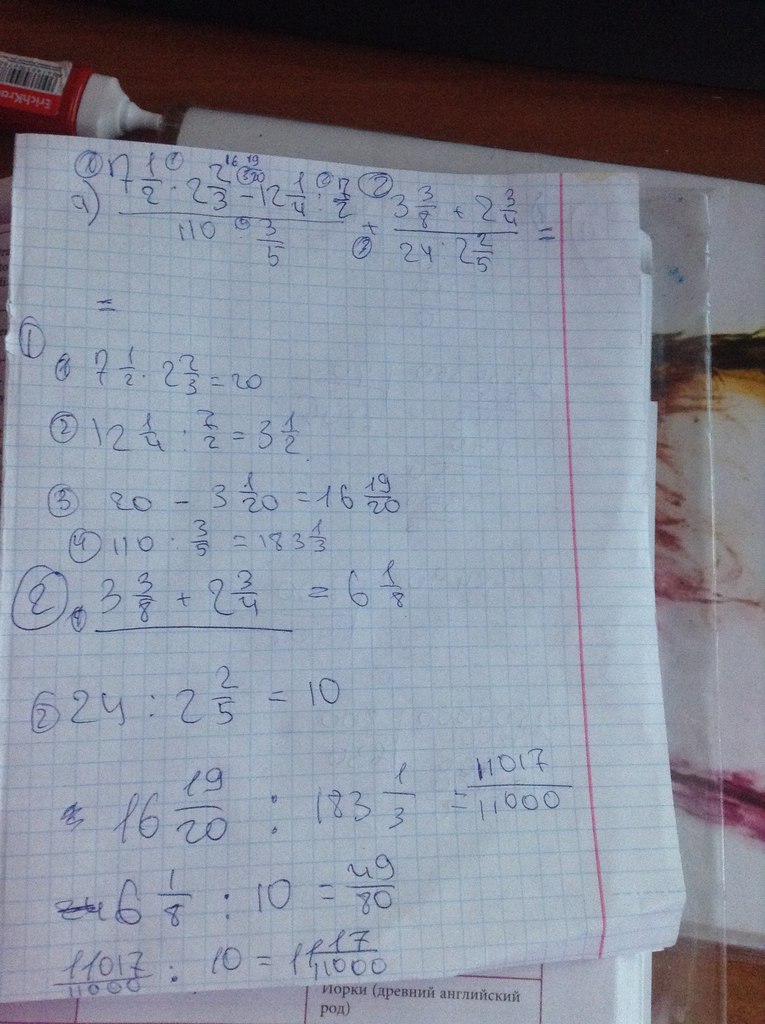 ErichKrau
а) (7 1/2 · 2 2/3 − 12 1/4 : 7/2) / (110 : 3/5) + (3 3/8 + 2 3/4) / (24 : 2 2/5) =
=
① ① 7 1/2 · 2 2/3 = 20
② 12 1/4 : 7/2 = 3 1/2
③ 20 − 3 1/20 = 16 19/20
④ 110 : 3/5 = 183 1/3
② ① 3 3/8 + 2 3/4 = 6 1/8
② 24 : 2 2/5 = 10
16 19/20 : 183 1/3 = 11017/11000
6 1/8 : 10 = 49/80
11017/11000 : 10 =
Йорки (древний английский
род)